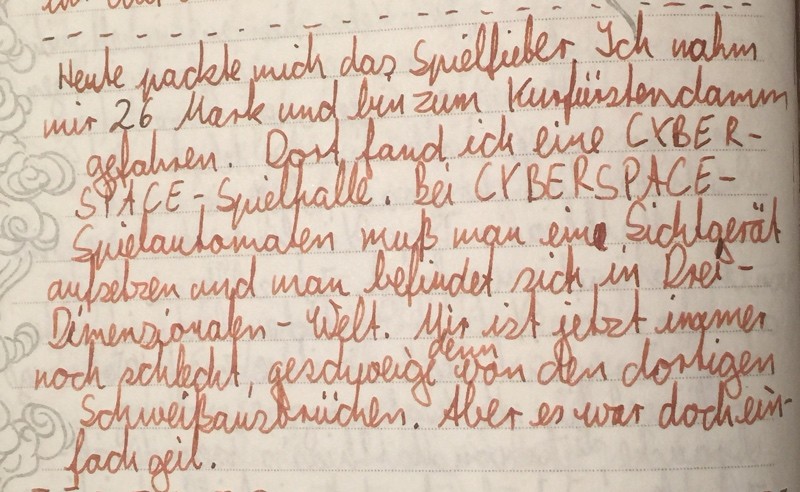 Heute packte mich das Spielfieber Ich nahm
mir 26 Mark und bin zum Kurfürstendamm
gefahren. Dort fand ich eine CYBER-
SPACE-Spielhalle. Bei CYBERSPACE-
Spielautomaten muß man ein Sichtgerät
aufsetzen und man befindet sich in Drei-
Dimensionalen-Welt. Mir ist jetzt immer
noch schlecht, geschweige denn von den dortigen
Schweißausbrüchen. Aber es war doch ein-
fach geil.